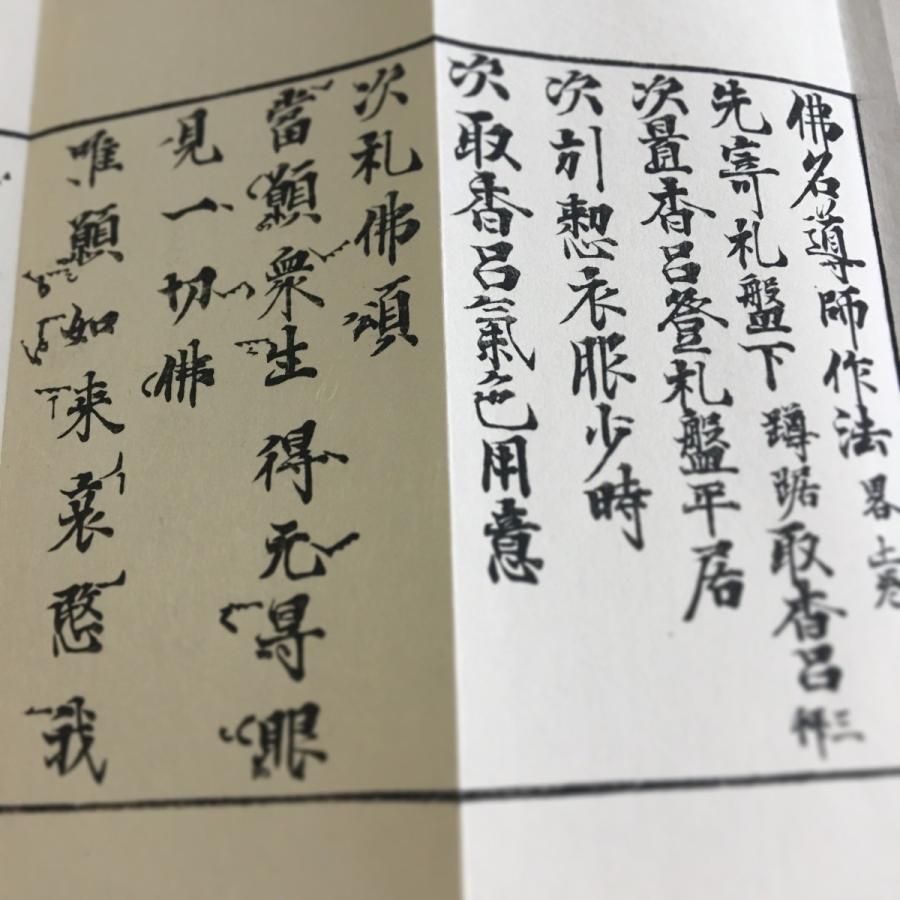 佛名導師作法 畧 上卷
先寄礼盤下 蹲踞 取香呂 三拜
次置香呂登礼盤平居
次引懃衣服少時
次取香呂氣色用意
次礼佛頌
當願衆生 得无㝵眼
見一切佛
唯願如来哀愍我